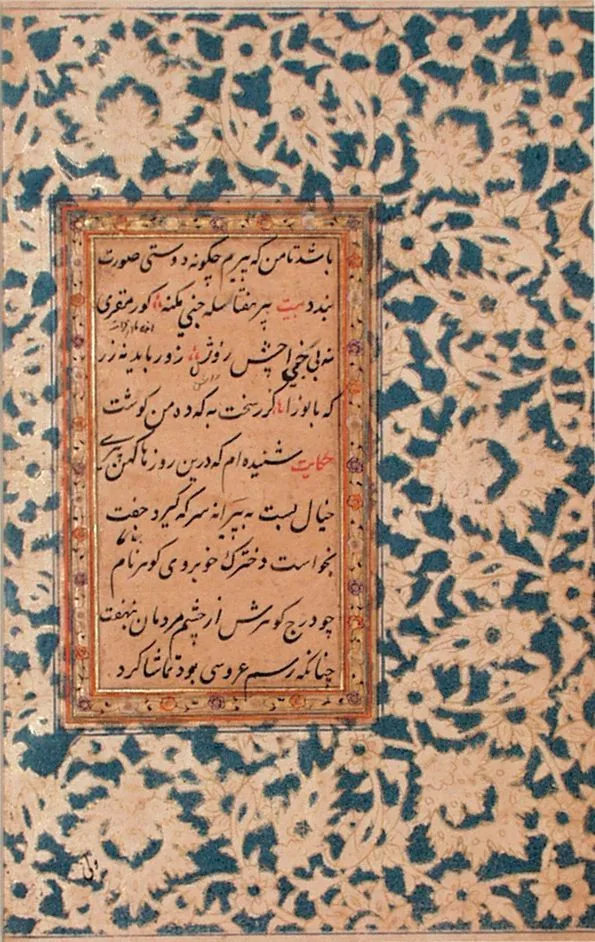 باشد تا من که پیرم چگونه دوستی صورت
بندد بیت پیر هفتاسله جنی مکنه کور مقری
نه بی چش زور باید نه زر
که بانو را گزر سخت به که ده من کوشت
حکایت شنیده ام که درین روزها کهن پیری
خیال بست به پیرانه سر که گیرد جفت
بخواست دخترکی خوبروی کوهر نام
چو درج کوهرش از چشم مردمان بنهفت
چنانکه رسم عروسی بود تماشا کرد